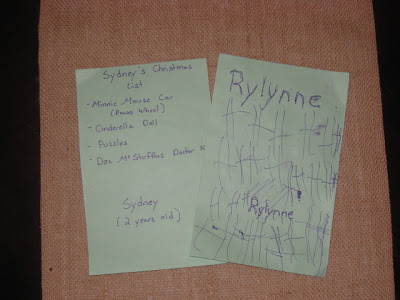 Sydney's Christmas
List
- Minnie Mouse Car
(Power Wheel)
- Cinderella Doll
- Puzzles
- Doc McStuffins Doctor K
Sydney
(2 years old)
Rylynne
Rylynne